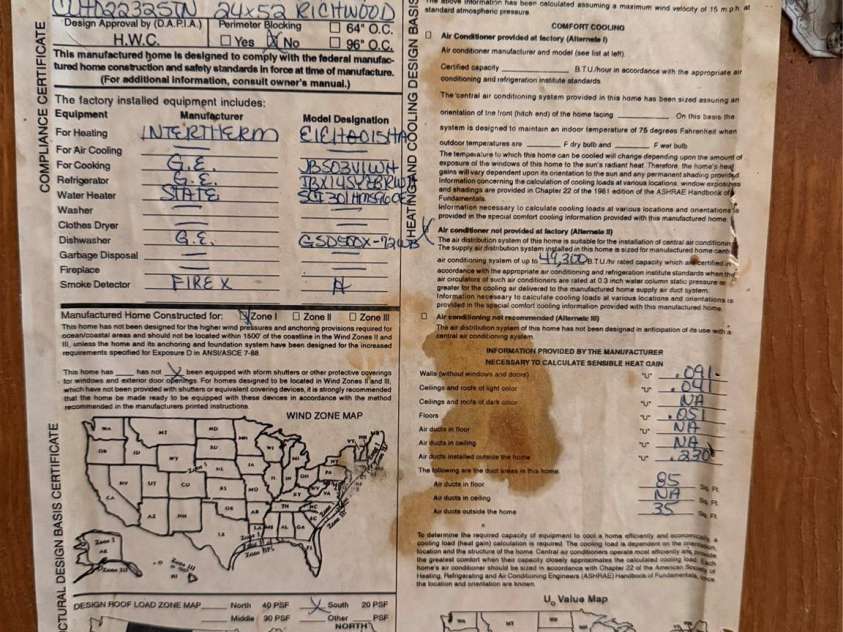 CLHD22325TN 24x52 RICHWOOD
Design Approval by (D.A.P.I.A.) Perimeter Blocking ☐ 64" O.C.
H.W.C. ☐ Yes ☒ No ☐ 96" O.C.
This manufactured home is designed to comply with the federal manufac-
tured home construction and safety standards in force at time of manufacture.
(For additional information, consult owner's manual.)
COMPLIANCE CERTIFICATE
The factory installed equipment includes:
Equipment Manufacturer Model Designation
For Heating INTERTHERM E1EHA015HA
For Air Cooling —
For Cooking G.E. JBS03V1WH
Refrigerator G.E.
Water Heater STATE
Washer — —
Clothes Dryer — —
Dishwasher G.E.
Garbage Disposal — —
Fireplace — —
Smoke Detector FIREX A
Manufactured Home Constructed for: ☒ Zone I ☐ Zone II ☐ Zone III
This home has not been designed for the higher wind pressures and anchoring provisions required for
ocean/coastal areas and should not be located within 1500' of the coastline in the Wind Zones II and
III, unless the home and its anchoring and foundation system have been designed for the increased
requirements specified for Exposure D in ANSI/ASCE 7-88.
This home has ____ has not X been equipped with storm shutters or other protective coverings
for windows and exterior door openings. For homes designed to be located in Wind Zones II and III,
which have not been provided with shutters or equivalent covering devices, it is strongly recommended
that the home be made ready to be equipped with these devices in accordance with the method
recommended in the manufacturers printed instructions.
WIND ZONE MAP
CTURAL DESIGN BASIS CERTIFICATE
DESIGN ROOF LOAD ZONE MAP ____ North 40 PSF X South 20 PSF
____ Middle 30 PSF ____ Other ____ PSF
NORTH
HEATING AND COOLING DESIGN BASIS
The above information has been calculated assuming a maximum wind velocity of 15 m.p.h. at
standard atmospheric pressure.
COMFORT COOLING
☐ Air Conditioner provided at factory (Alternate I)
Air conditioner manufacturer and model (see list at left).
Certified capacity ____ B.T.U./hour in accordance with the appropriate air
conditioning and refrigeration institute standards
The central air conditioning system provided in this home has been sized assuming an
orientation of the front (hitch end) of the home facing ____ On this basis the
system is designed to maintain an indoor temperature of 75 degrees Fahrenheit when
outdoor temperatures are ____ F dry bulb and ____ F wet bulb
The temperature to which this home can be cooled will change depending upon the amount of
exposure of the windows of this home to the sun's radiant heat. Therefore, the home's heat
gains will vary dependent upon its orientation to the sun and any permanent shading provided
Information concerning the calculation of cooling loads at various locations, window exposures
and shadings are provided in Chapter 22 of the 1981 edition of the ASHRAE Handbook of
Fundamentals.
Information necessary to calculate cooling loads at various locations and orientations is
provided in the special comfort cooling information provided with this manufactured home.
X Air conditioner not provided at factory (Alternate II)
The air distribution system of this home is suitable for the installation of central air conditioning
The supply air distribution system installed in this home is sized for manufactured home central
air conditioning system of up to 49,300 B.T.U./hr rated capacity which are certified in
accordance with the appropriate air conditioning and refrigeration institute standards when the
air circulators of such air conditioners are rated at 0.3 inch water column static pressure or
greater for the cooling air delivered to the manufactured home supply air duct system.
Information necessary to calculate cooling loads at various locations and orientations is
provided in the special comfort cooling information provided with this manufactured home.
☐ Air conditioning not recommended (Alternate III)
The air distribution system of this home has not been designed in anticipation of its use with a
central air conditioning system.
INFORMATION PROVIDED BY THE MANUFACTURER
NECESSARY TO CALCULATE SENSIBLE HEAT GAIN
Walls (without windows and doors) "U" .091
Ceilings and roofs of light color "U" .041
Ceilings and roofs of dark color "U" NA
Floors "U" .051
Air ducts in floor "U" NA
Air ducts in ceiling "U" NA
Air ducts installed outside the home "U" .230
The following are the duct areas in this home
Air ducts in floor 85 Sq. Ft.
Air ducts in ceiling NA Sq. Ft.
Air ducts outside the home 35 Sq. Ft.
To determine the required capacity of equipment to cool a home efficiently and economically, a
cooling load (heat gain) calculation is required. The cooling load is dependent on the orientation,
location and the structure of the home. Central air conditioners operate most efficiently and provide
the greatest comfort when their capacity closely approximates the calculated cooling load. Each
home's air conditioner should be sized in accordance with Chapter 22 of the American Society of
Heating, Refrigerating and Air Conditioning Engineers (ASHRAE) Handbook of Fundamentals, once
the location and orientation are known.
Uo Value Map